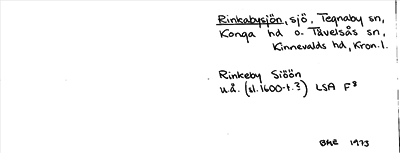 Rinkabysjön, sjö, Tegnaby sn,
Konga hd o. Tävelsås sn,
Kinnevalds hd, Kron.l.
Rinkeby Siöön
u.å. (sl.1600-t.?) LSA F⁸
BHE 1973